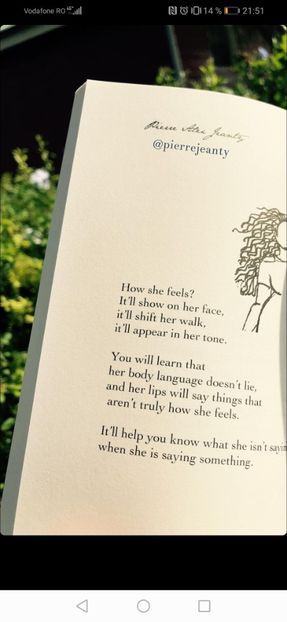 Vodafone RO
14 %
21:51
Pierre Alex Jeanty
@pierrejeanty
How she feels?
It'll show on her face,
it'll shift her walk,
it'll appear in her tone.
You will learn that
her body language doesn't lie,
and her lips will say things that
aren't truly how she feels.
It'll help you know what she isn't
when she is saying something.